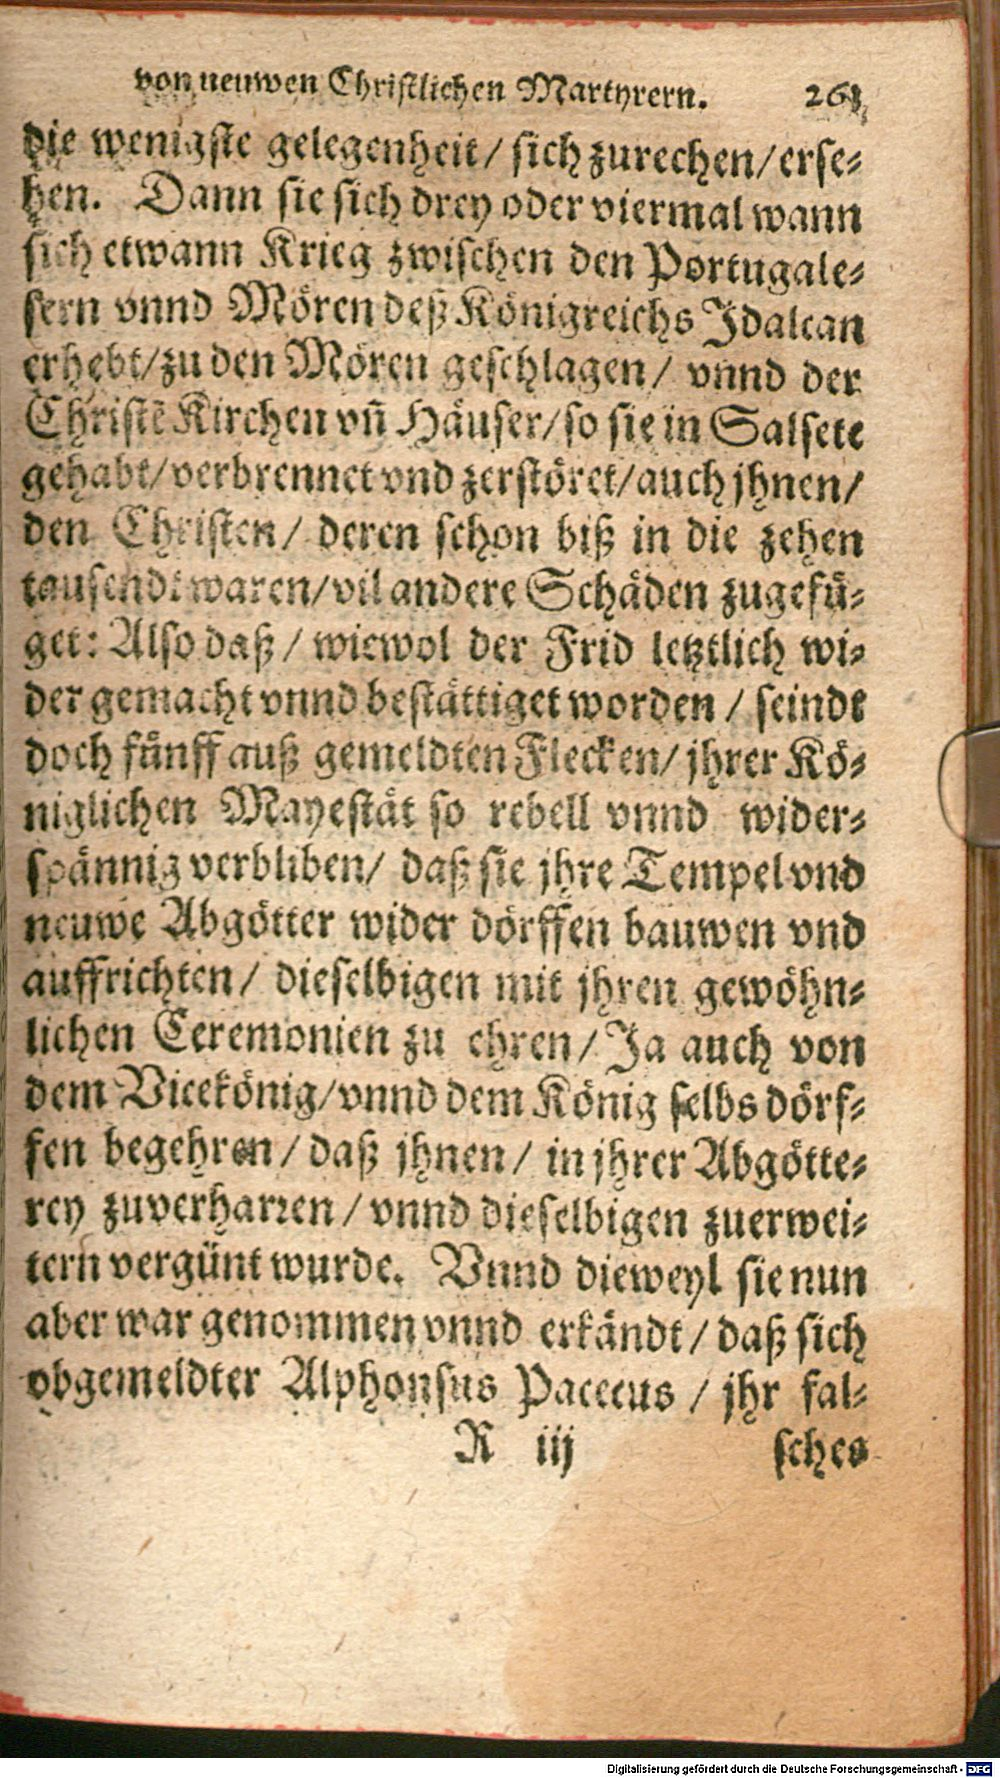 von neuwen Christlichen Martyrern. 261
die wenigste gelegenheit / sich zurechen / erse-
hen. Dann sie sich drey oder viermal wann
sich etwann Krieg zwischen den Portugale-
sern vnnd Mören deß Königreichs Idalcan
erhebt / zu den Mören geschlagen / vnnd der
Christē Kirchen vñ Häuser / so sie in Salsete
gehabt / verbrennet vnd zerstöret / auch jhnen /
den Christen / deren schon biß in die zehen
tausendt waren / vil andere Schäden zugefü-
get: Also daß / wiewol der Frid letztlich wi-
der gemacht vnnd bestättiget worden / seindt
doch fünff auß gemeldten Flecken / jhrer Kö-
niglichen Mayestät so rebell vnnd wider-
spännig verbliben / daß sie jhre Tempel vnd
neuwe Abgötter wider dörffen bauwen vnd
auffrichten / dieselbigen mit jhren gewöhn-
lichen Ceremonien zu ehren / Ja auch von
dem Vicekönig / vnnd dem König selbs dörf-
fen begehren / daß jhnen / in jhrer Abgötte-
rey zuverharren / vnnd dieselbigen zuerwei-
tern vergünt wurde. Vnnd dieweyl sie nun
aber war genommen vnnd erkändt / daß sich
obgemeldter Alphonsus Pacecus / jhr fal-
R iij sches
Digitalisierung gefördert durch die Deutsche Forschungsgemeinschaft - DFG